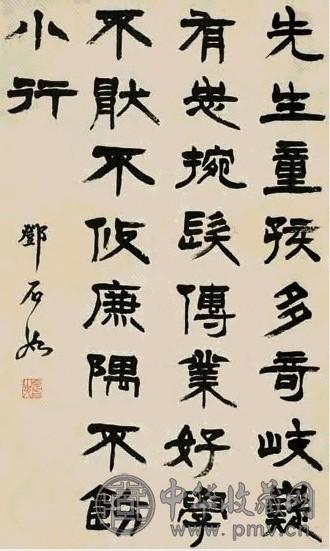 先生童孩多奇岐嶷
有志捥髮傳業好學
不猒不攸廉隅不飭
小行
鄧石如
中华收藏网
www.pmv.cn